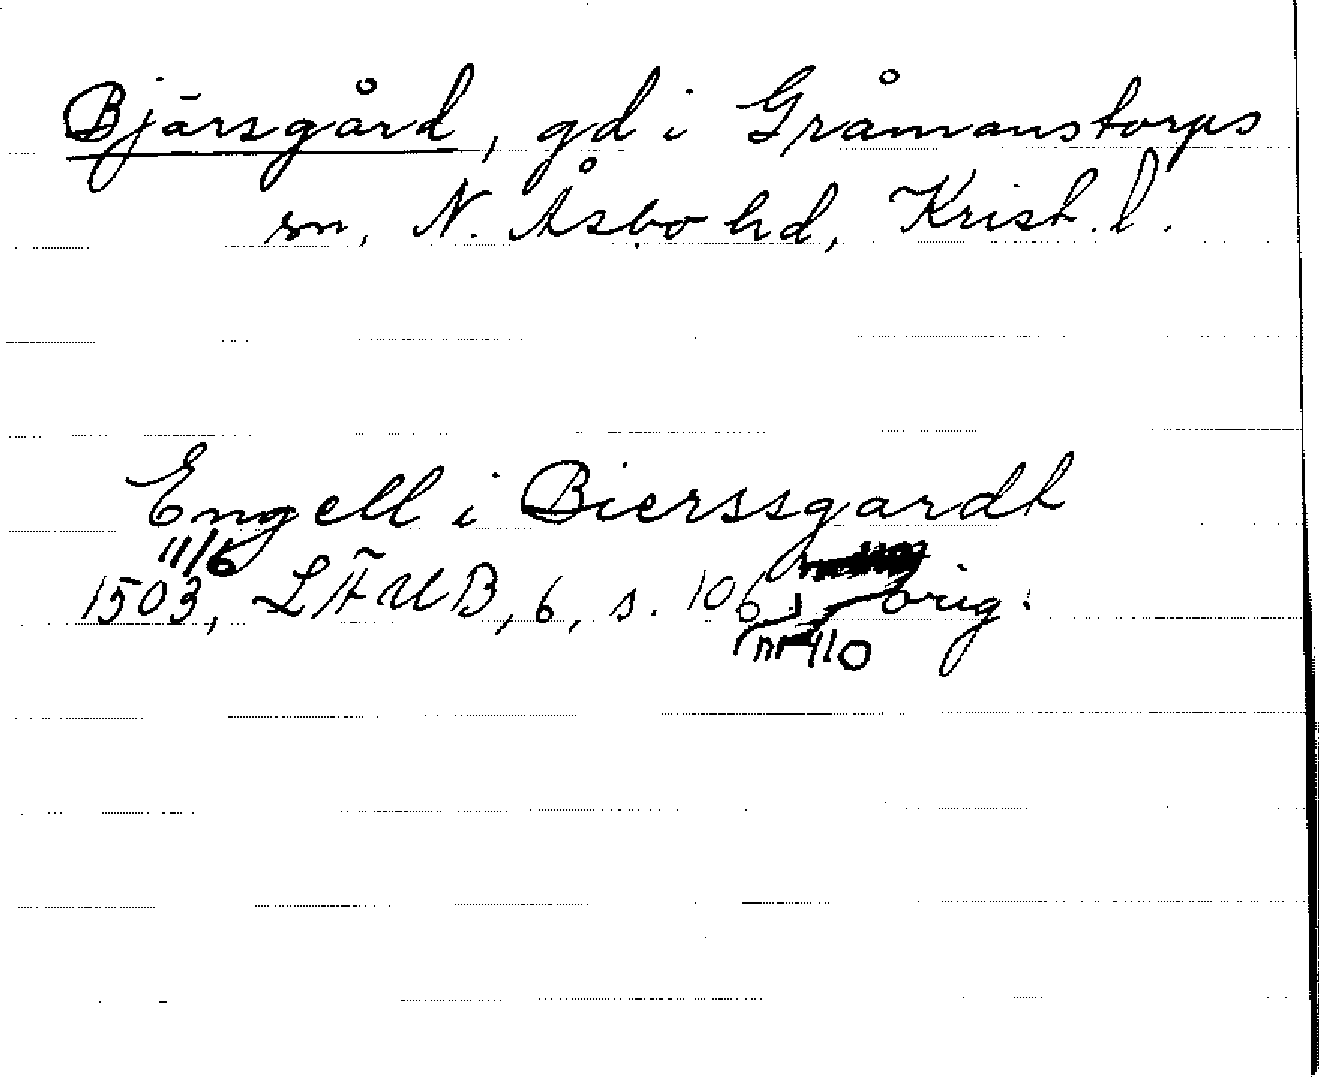 Bjärsgård, gd i Gråmanstorps
sn, N. Åsbo hd, Krist. l.
Engell i Bierssgardh
11/6
1503, LÄUB, 6, s. 106, orig.
nr 410